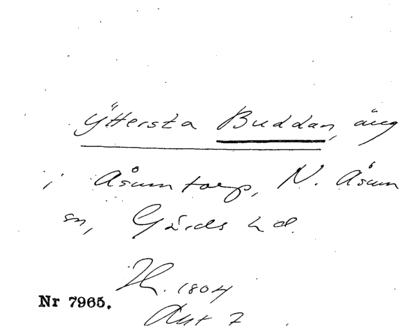 Yttersta Buddan, äng
i Åsumtorp, N. Åsum
sn, Gärds hd.
H. 1804
Nr 7965.
Akt 7